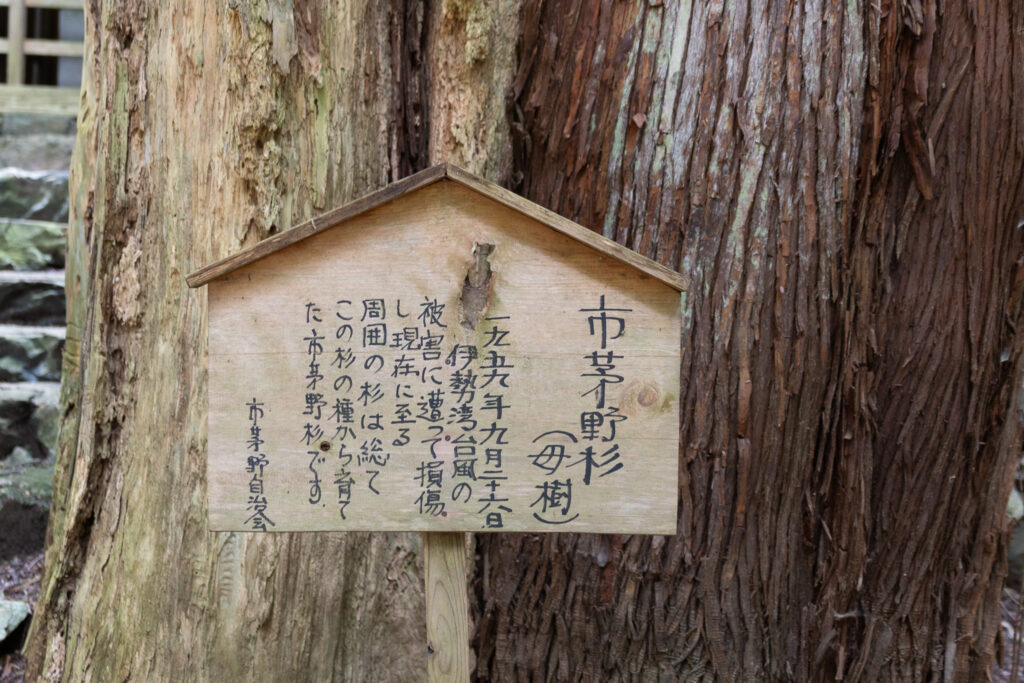 市茅野杉
(母樹)
一九五九年九月二十六日
伊勢湾台風の
被害に遭って損傷。
し現在に至る
周囲の杉は総て
この杉の種から育て
た市茅野杉です.
市茅野自治会